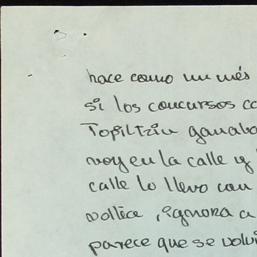 hace como un més
si los concursos co
Topiltzin ganaba
voy en la calle y
calle lo llevo con
voltea, ignora a
parece que se volvi